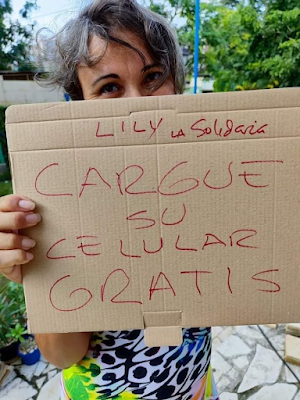 LILY LA Solidaria
CARGUE
SU
CELULAR
GRATIS